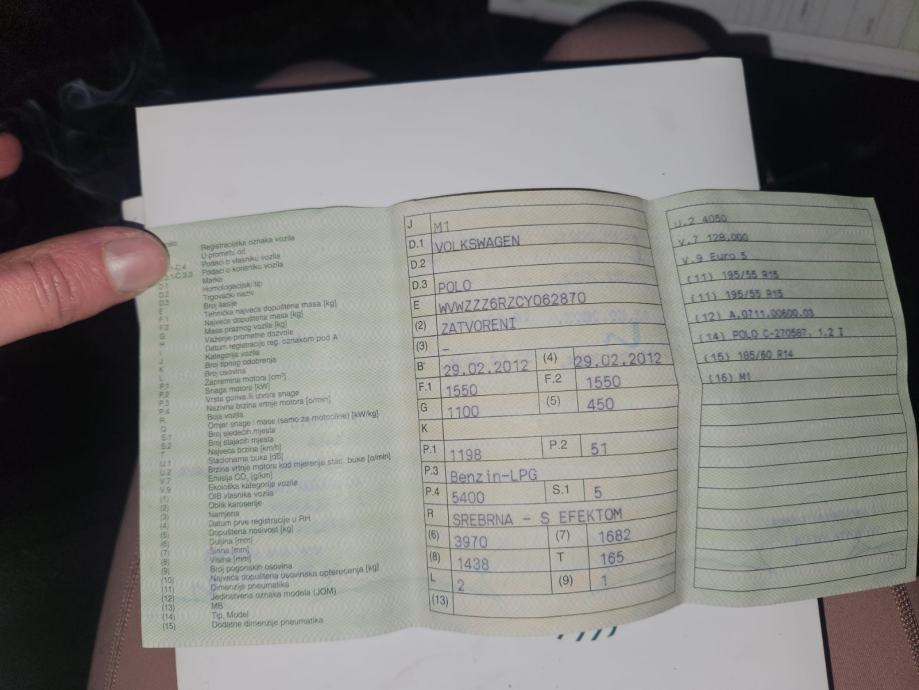 Registracijska oznaka vozila
U prometu od
C.4 Podaci o vlasniku vozila
C.3.3 Podaci o korisniku vozila
D.1 Marka
D.2 Homologacijski tip
D.3 Trgovački naziv
E Broj šasije
F.1 Tehnička najveća dopuštena masa [kg]
F.2 Najveća dopuštena masa [kg]
G Masa praznog vozila [kg]
H Važenje prometne dozvole
I Datum registracije reg. oznakom pod A
J Kategorija vozila
K Broj tipnog odobrenja
L Broj osovina
P.1 Zapremina motora [cm³]
P.2 Snaga motora [kW]
P.3 Vrsta goriva ili izvora snage
P.4 Nazivna brzina vrtnje motora [o/min]
R Boja vozila
Q Omjer snage i mase (samo za motocikle) [kW/kg]
S.1 Broj sjedećih mjesta
S.2 Broj stajaćih mjesta
T Najveća brzina [km/h]
U.1 Stacionarna buka [dB]
U.2 Brzina vrtnje motora kod mjerenja stac. buke [o/min]
V.7 Emisija CO₂ [g/km]
V.9 Ekološka kategorija vozila
(1) OIB vlasnika vozila
(2) Oblik karoserije
(3) Namjena
(4) Datum prve registracije u RH
(5) Dopuštena nosivost [kg]
(6) Duljina [mm]
(7) Širina [mm]
(8) Visina [mm]
(9) Broj pogonskih osovina
(10) Najveća dopuštena osovinska opterećenja [kg]
(11) Dimenzije pneumatika
(12) Jedinstvena oznaka modela (JOM)
(13) MB
(14) Tip, Model
(15) Dodatne dimenzije pneumatika
J M1
D.1 VOLKSWAGEN
D.2
D.3 POLO
E WVWZZZ6RZCY062870
(2) ZATVORENI
(3) –
B 29.02.2012 (4) 29.02.2012
F.1 1550 F.2 1550
G 1100 (5) 450
K
P.1 1198 P.2 51
P.3 Benzin-LPG
P.4 5400 S.1 5
R SREBRNA - S EFEKTOM
(6) 3970 (7) 1682
(8) 1438 T 165
L 2 (9) 1
(13)
U.2 4050
V.7 128,000
V.9 Euro 5
(11) 195/55 R15
(11) 195/55 R15
(12) A.0711.00600.03
(14) POLO C-270587, 1.2 I
(15) 185/60 R14
(16) M1